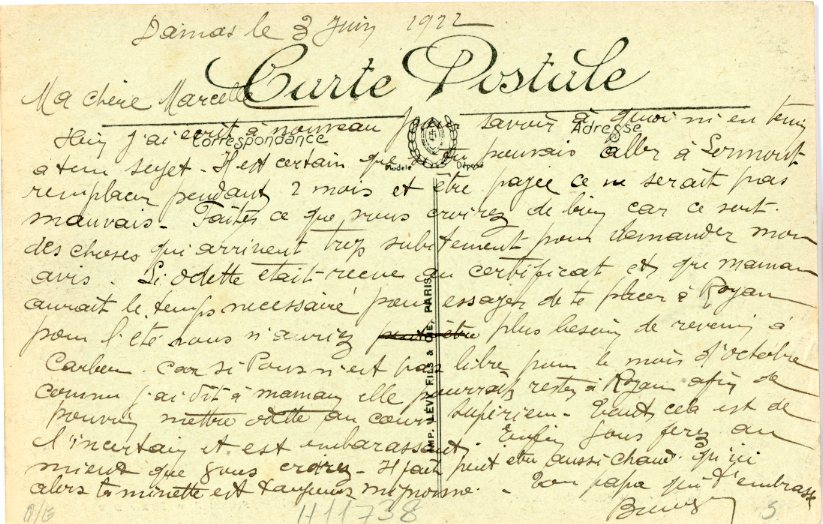 Damas le 3 Juin 1922
Carte Postale
Ma chère Marcelle
Correspondance
Adresse
Modèle Déposé
Hier j'ai ecrit à nouveau pour savoir à quoi m'en tenir
a ton sujet - Il est certain que si tu pouvais aller à Lormont
remplacer pendant 2 mois et être payée ce ne serait pas
mauvais - Faites ce que vous croirez de bien car ce sont
des choses qui arrivent trop subitement pour demander mon
avis. Si Odette etait recue au certificat et que maman
aurait le temps necessaire pour essayer de te placer à Royan
pour l'été vous n'auriez peut être plus besoin de revenir à
car si n'est pas libre pour le mois d'octobre
comme j'ai dit à maman elle pourrait rester à Royan afin de
pouvoir mettre odette au cours supérieur - Tout cela est de
l'incertain et est embarassant. Enfin vous ferez au
mieux que vous croirez - Il fait peut etre aussi chaud qu'ici
alors ta minette est toujours mignonne. - Ton papa qui t'embrasse
IMP. LEVY FILS & CIE. PARIS
H11738
S